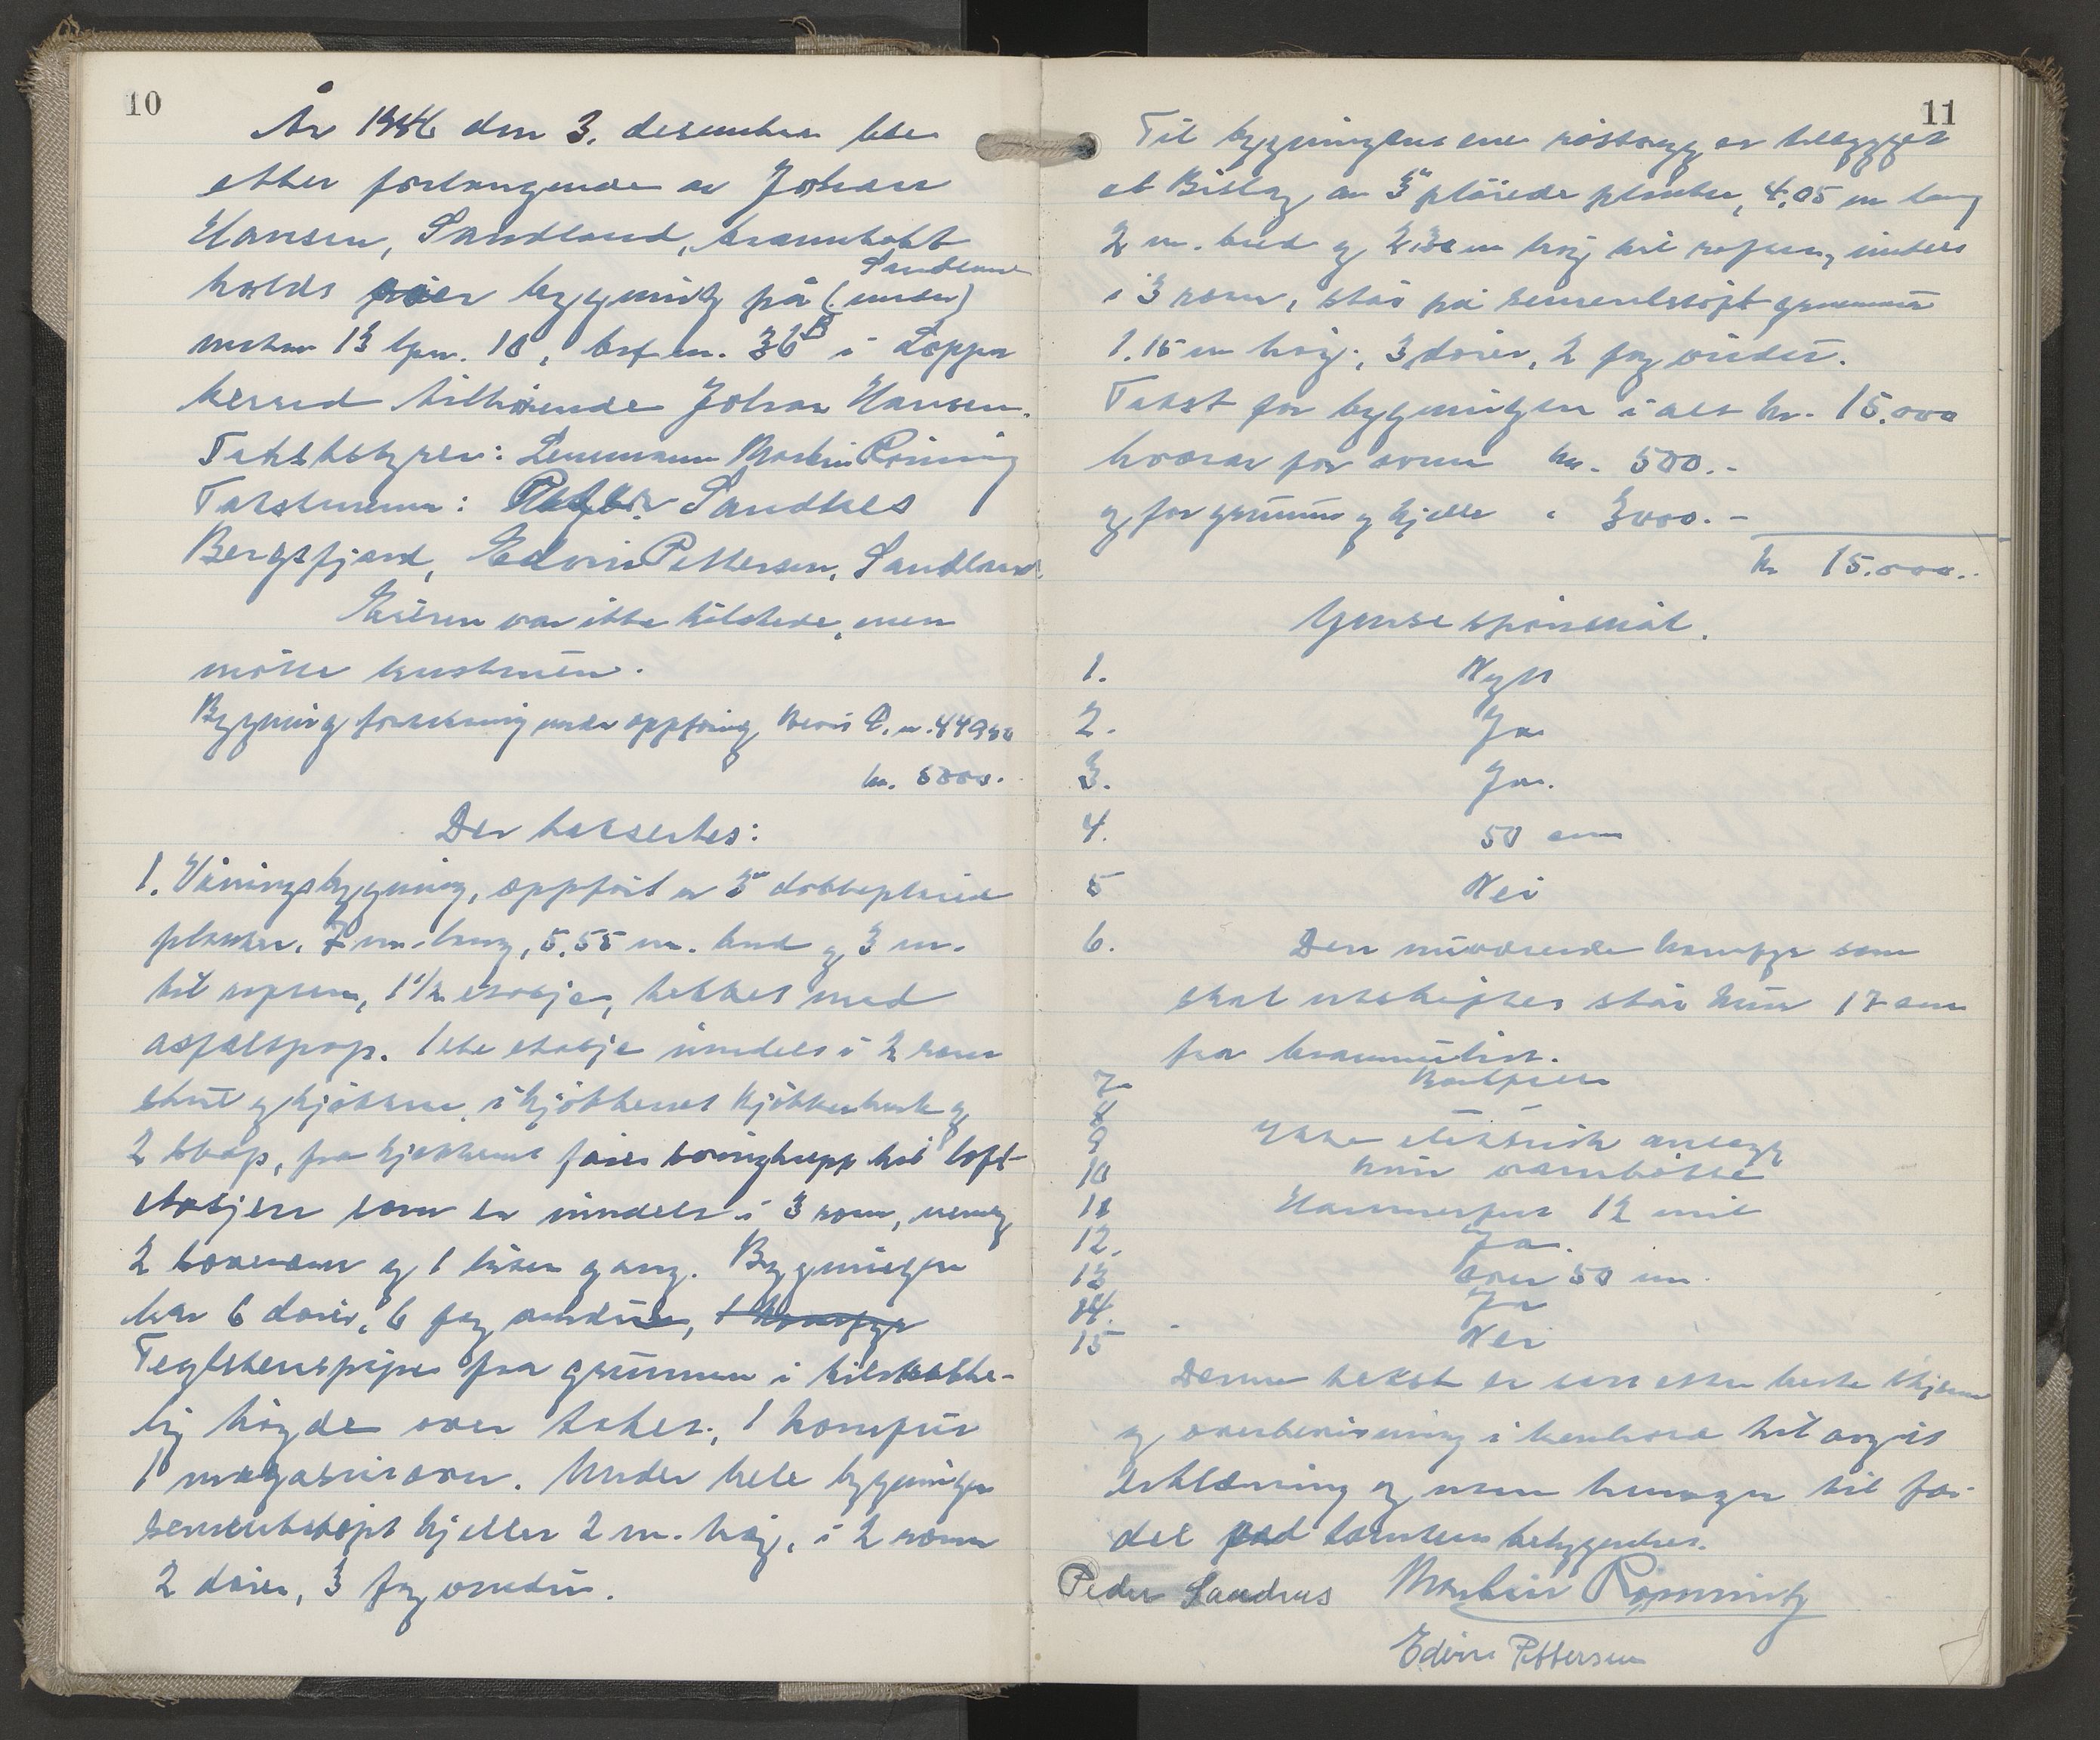 10
År 1946 den 3. desember ble
etter forlangende av Johan
Hansen, Sandland, branntakst
holdt over bygning på (under)
Sandland
matr. 13 lpnr. 10, brf. nr. 36 B i Loppa
herred tilhørende Johan Hansen.
Takstbestyrer: Lensmann Martin Rönning
Takstmenn: Peder Sandnes
Bergsfjord, Edvin Pettersen, Sandland
Eieren var ikke tilstede, men
møtte hustruen.
Bygning forsikring under oppföring, bevis P. nr. 44950
kr. 5000.
Der taksertes:
1. Våningsbygning, oppført av 3" dobbeltpløiede
planker, 7 m. lang, 5.55 m. bred og 3 m.
til røsten, 1 1/2 etasje, tekket med
asfaltpap. 1ste etasje inndelt i 2 rom
stue og kjøkken, i kjøkkenet kjøkkenbenk og
2 skap, fra kjøkkenet fører svingtrapp til loft-
etasjen som er inndelt i 3 rom, nemlig
2 soverom og 1 liten gang. Bygningen
har 6 dører, 6 fag vinduer, 1 komfyr
Teglstenspipe fra grunnen i tilstrekke-
lig høyde over taket, 1 komfyr
1 magasinovn. Under hele bygningen
sementstøpt kjeller 2 m. høy, i 2 rom
2 dører, 3 fag vinduer.
11
Til bygningens ene røstvegg er tilbygget
et Bislag av 3" pløiede planker, 4.05 m lang
2 m. bred og m høy til rafen, inndelt
i 3 rom, står på sementstøpt grunnmur
1.15 m høy, 3 dører, 2 fag vinduer.
Takst for bygningen i alt kr. 15.000
hvorav for ovner kr. 500.-
og for grunnmur og kjeller " 3000.-
kr 15.000.-
Ymse spørsmål.
1. Nytt
2. Ja
3. Ja.
4. 50 cm
5 Nei
6. Den nuværende komfyr som
skal utskiftes står kun 17 cm
fra brannmuren.
7.
8 -
9 Ikke elektrisk anlegg
10 kun vannbøtte
11 Hammerfest 12 mil
12. Ja.
13 over 50 m.
14. Ja
15 Nei
Denne takst er satt etter beste skjønn
og overbevisning i henhold til avgitt
erklæring og uten hensyn til for-
del ved tomtens bebyggelse.
Peder Sandnes Martin Rönning
Edvin Pettersen